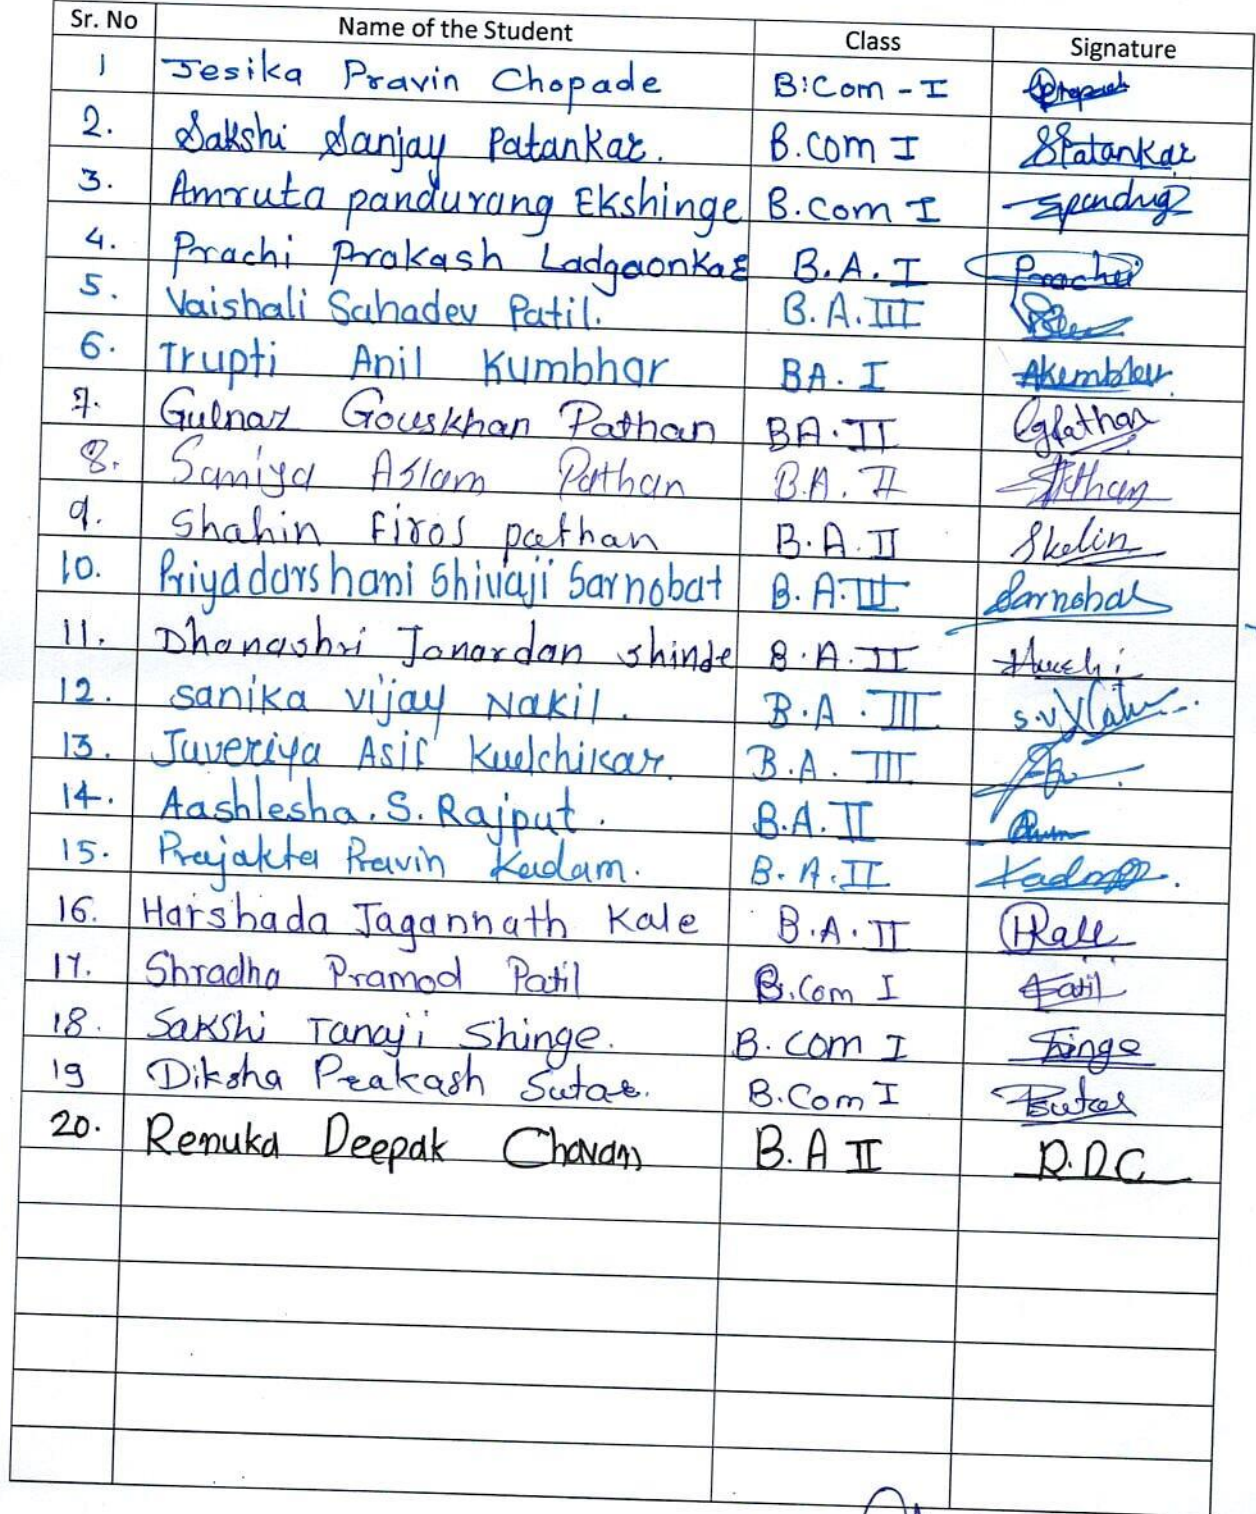 Sr. No Name of the Student Class Signature
1 Jesika Pravin Chopade B.Com - I
2. Sakshi Sanjay Patankar. B.com I SPatankar
3. Amruta pandurang Ekshinge B.com I
4. Prachi Prakash Ladgaonkar B.A. I Prachi
5. Vaishali Sahadev Patil. B.A. III
6. Trupti Anil Kumbhar BA. I
7. Gulnaz Gouskhan Pathan BA. II
8. Samiya Aslam Pathan B.A. II
9. Shahin Firos pathan B.A. II
10. Priyadarshani Shivaji Sarnobat B.A. III Sarnobat
11. Dhanashri Janardan Shinde B.A. II
12. Sanika Vijay Nakil. B.A. III
13. Juveriya Asif B.A. III
14. Aashlesha. S. Rajput. B.A. II
15. Prajakta Pravin Kadam. B.A. II
16. Harshada Jagannath Kale B.A. II HKale
17. Shradha Pramod Patil B.Com I Patil
18. Sakshi Tanaji Shinge. B. com I Shinge
19 Diksha Prakash Sutar. B.Com I Sutar
20. Renuka Deepak Chavan B.A II R.D.C